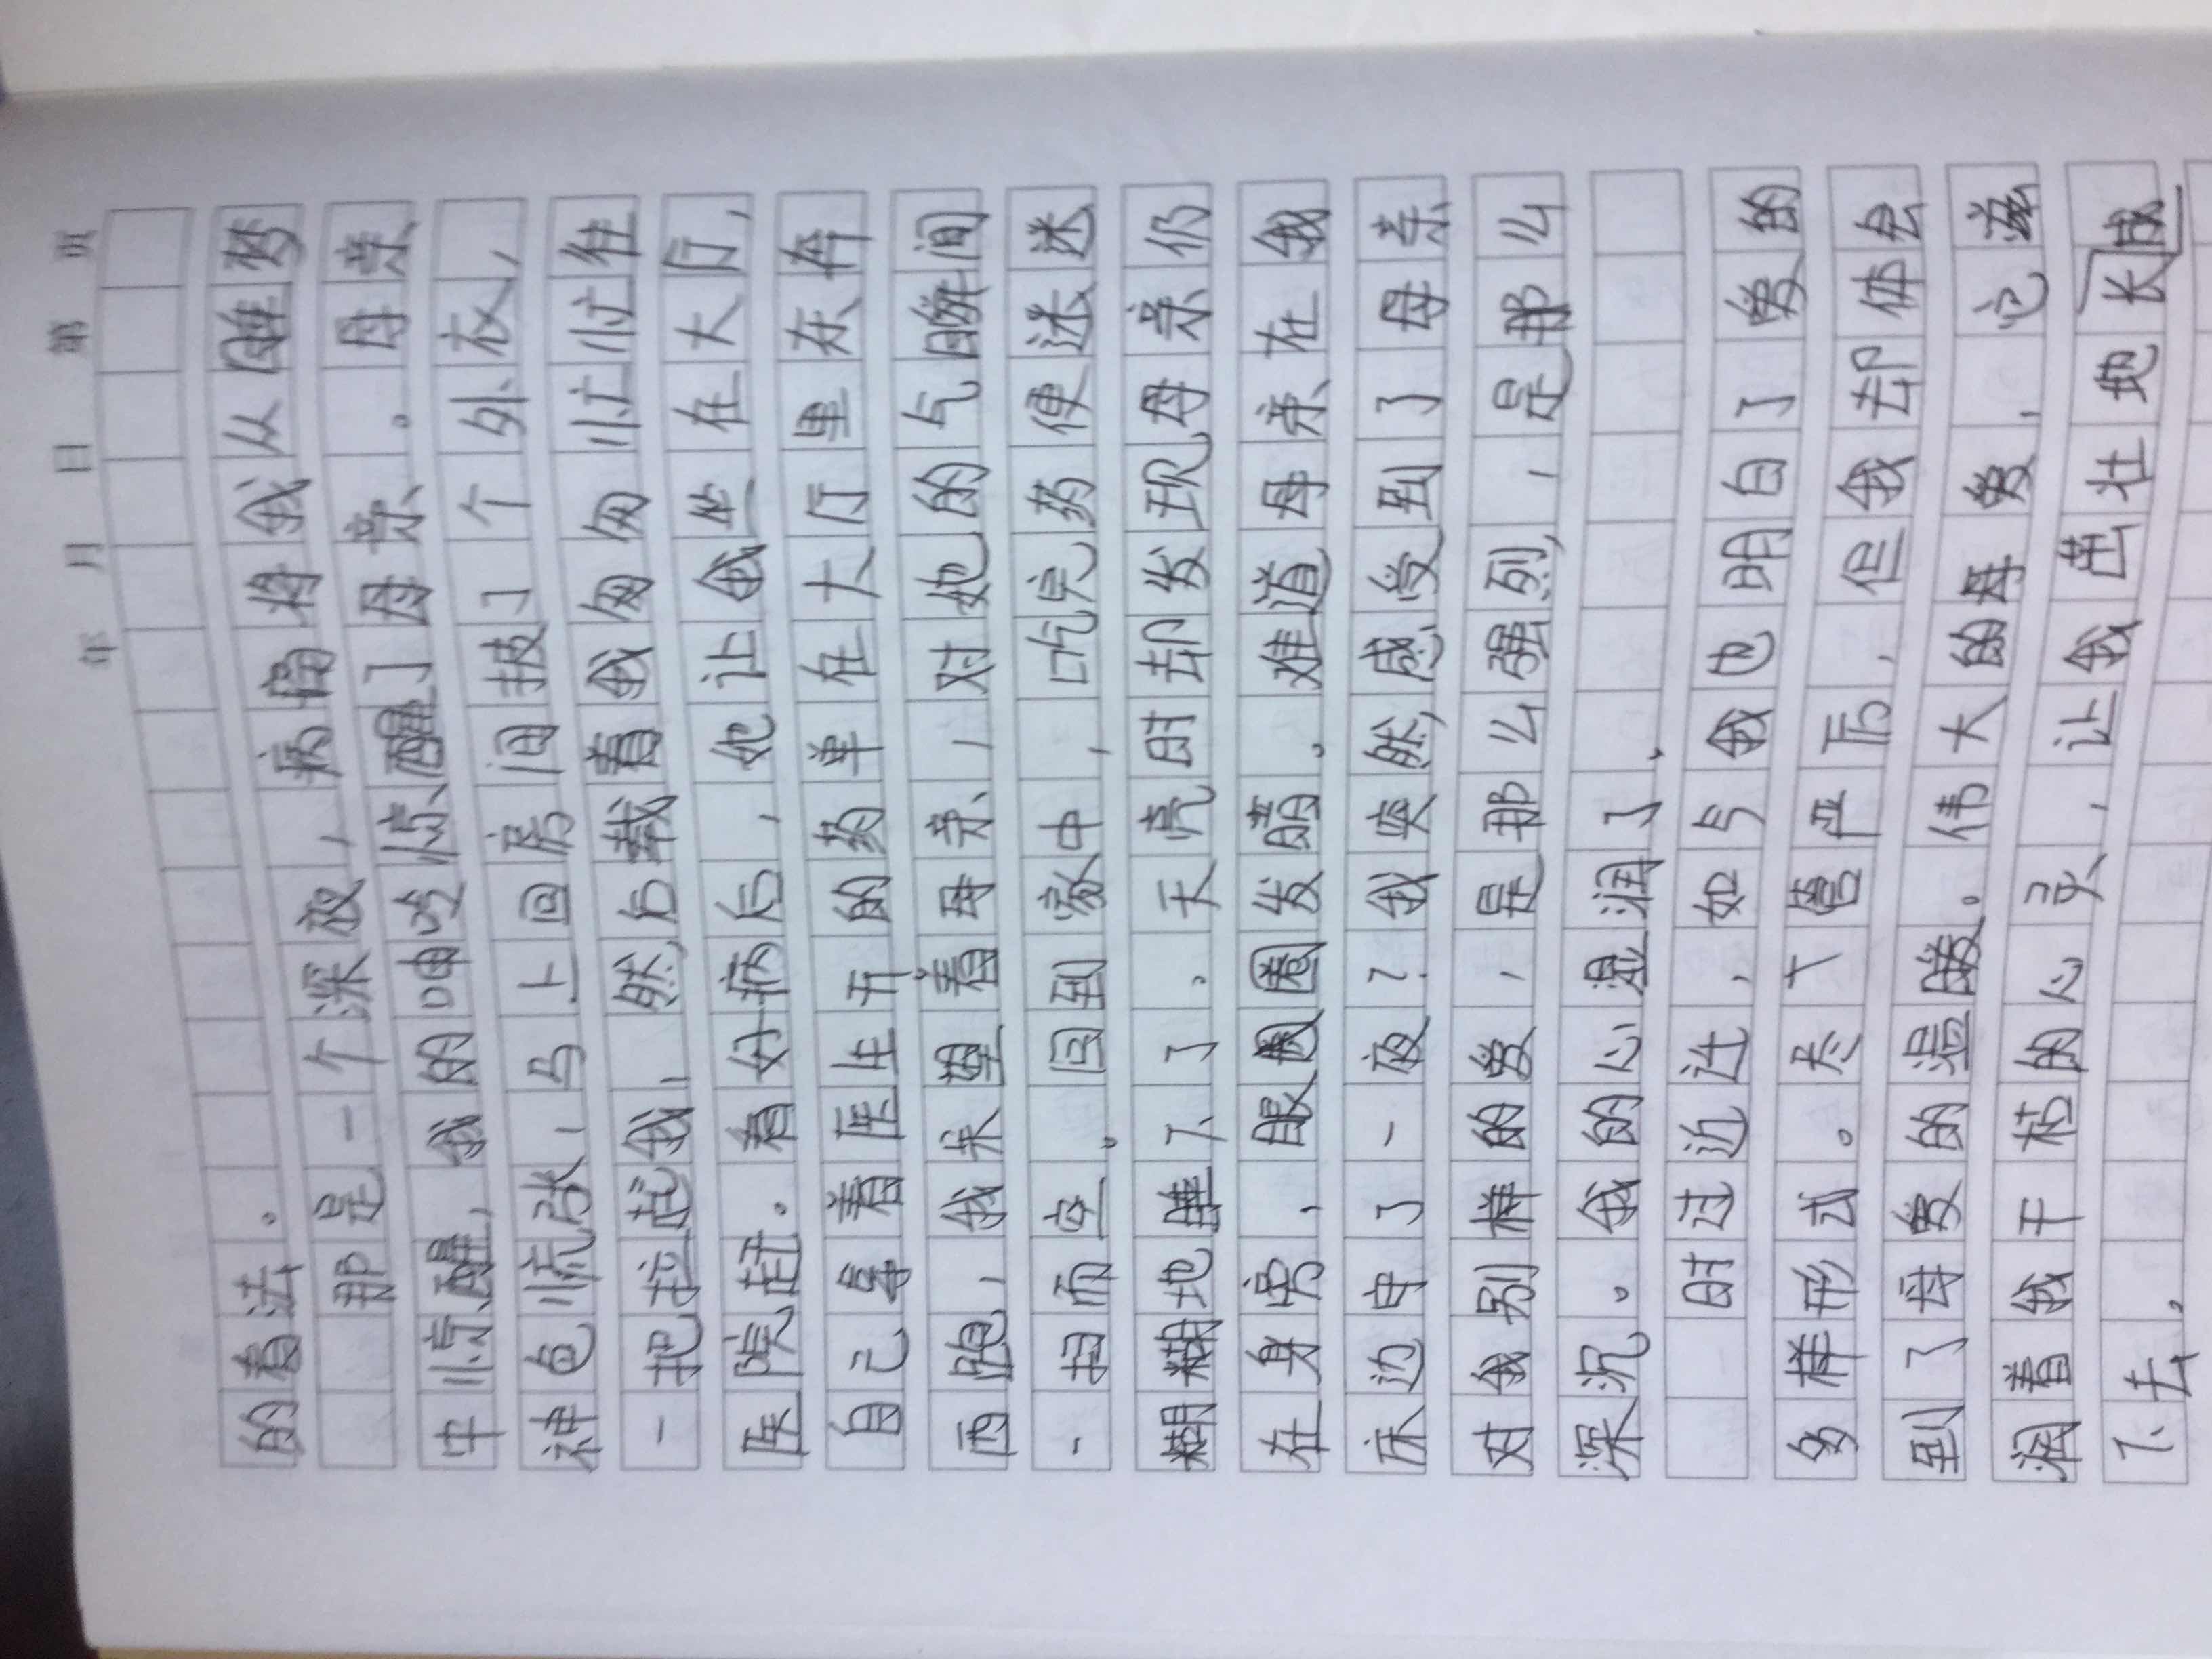 年 月 日 第 页
的看法。
那是一个深夜,病痛将我从睡梦
中惊醒,我的呻吟惊醒了母亲。母亲
神色慌张,马上回房间披了个外衣,
一把拉起我,然后载着我匆匆忙忙往
医院赶。看好病后,她让我坐在大厅,
自己拿着医生开的药单在大厅里东奔
西跑,我呆望着母亲,对她的气瞬间
一扫而空。回到家中,吃完药便迷迷
糊糊地睡下了。天亮时却发现母亲仍
在身旁,眼圈发黯。难道母亲在我
床边守了一夜?我突然感受到了母亲
对我别样的爱,是那么强烈,是那么
深沉。我的心湿润了。
时过近迁,如今我也明白了爱的
多样形式。尽管严厉,但我却体会
到了母爱的温暖。伟大的母爱,它滋
润着我干枯的心灵,让我茁壮地成长
下去。